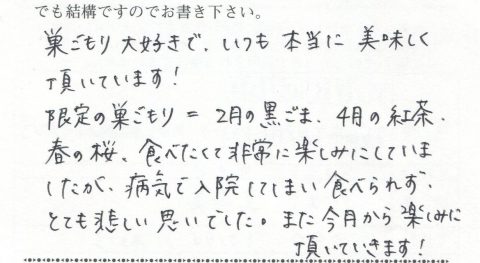 でも結構ですのでお書き下さい。
巣ごもり大好きで、いつも本当に美味しく
頂いています！
限定の巣ごもり＝2月の黒ごま、4月の紅茶、
春の桜、食べたくて非常に楽しみにしていま
したが、病気で入院してしまい食べられず、
とても悲しい思いでした。また今月から楽しみに
頂いていきます！